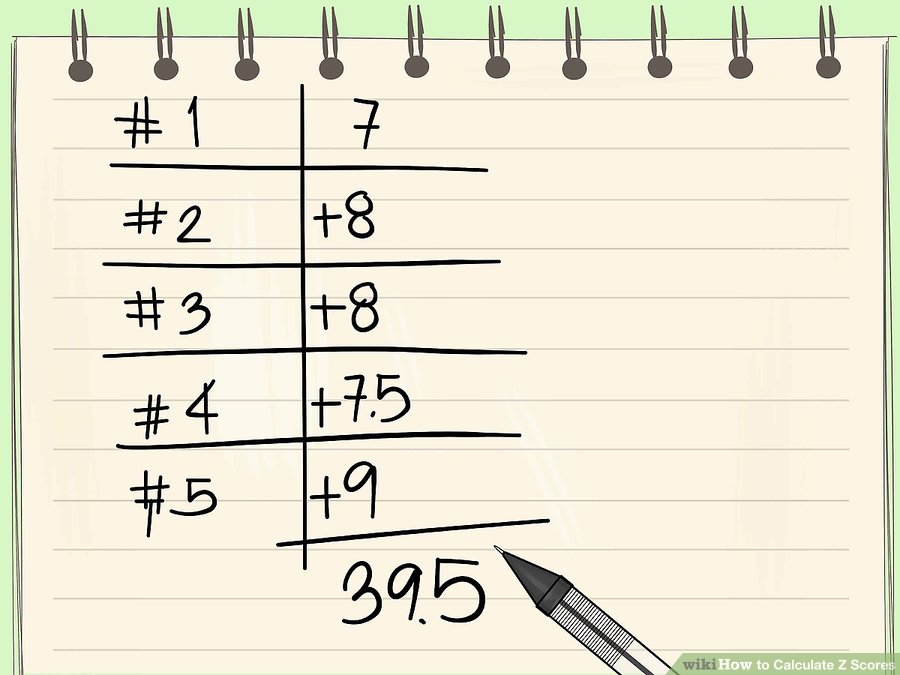 # 1 7
# 2 +8
# 3 +8
# 4 +7.5
# 5 +9
39.5
wikiHow to Calculate Z Scores